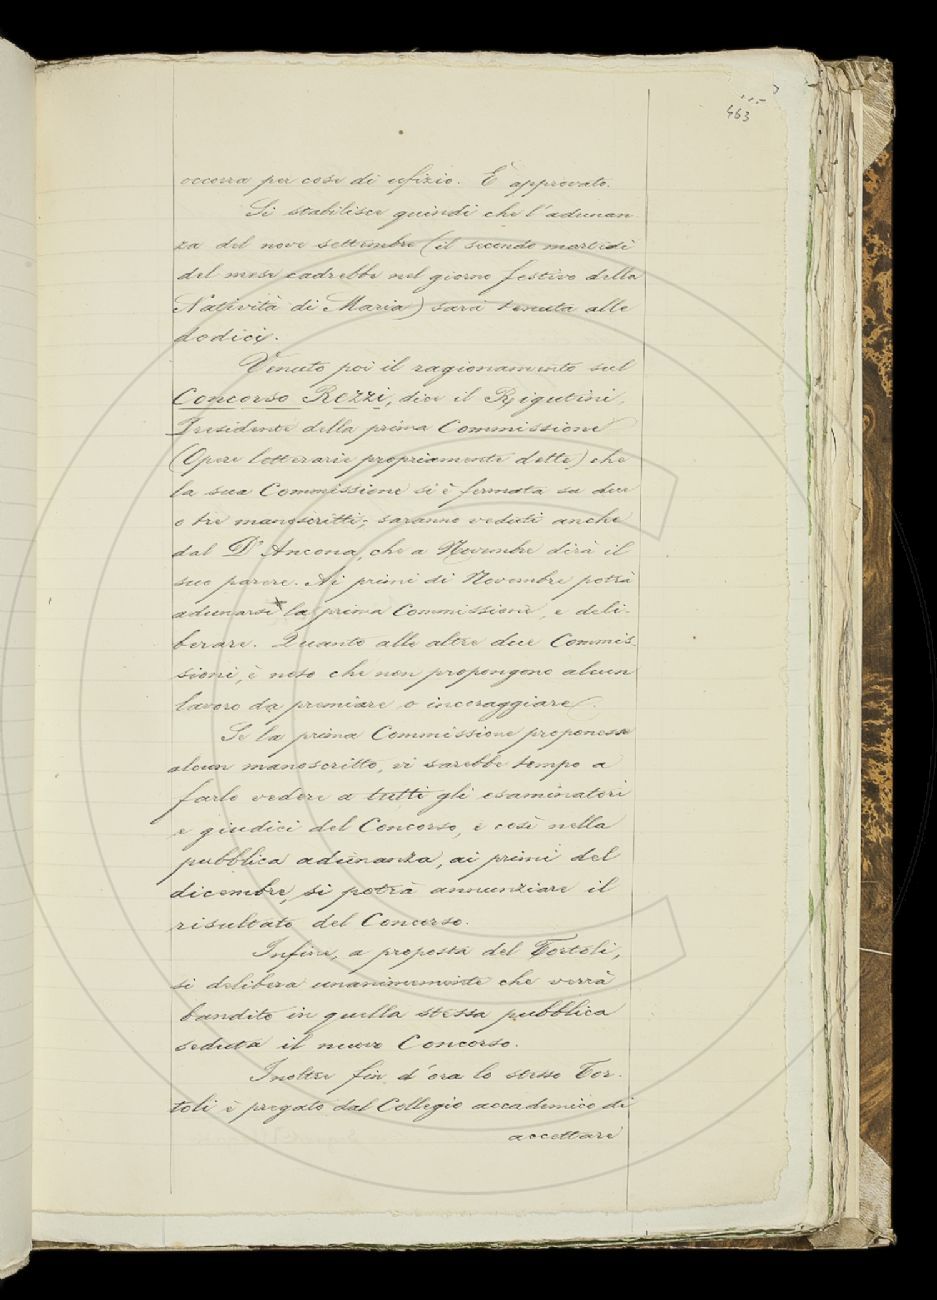 463
occorra per cose di ufizio. È approvato.
Si stabilisce quindi che l'adunan
za del nove settembre (il secondo martedì
del mese cadrebbe nel giorno festivo della
Natività di Maria) sarà tenuta alle
dodici.
Venuto poi il ragionamento sul
Concorso Rezzi, dice il Rigutini,
Presidente della prima Commissione
(Opere letterarie propriamente dette) che
la sua Commissione si è fermata su due
o tre manoscritti; saranno veduti anche
dal D'Ancona, che a Novembre dirà il
suo parere. Ai primi di Novembre potrà
adunarsi la prima Commissione, e deli-
berare. Quanto alle altre due Commis-
sioni, è noto che non propongono alcun
lavoro da premiare o incoraggiare.
Se la prima Commissione proponesse
alcun manoscritto, vi sarebbe tempo a
farlo vedere a tutti gli esaminatori
e giudici del Concorso, e così nella
pubblica adunanza, ai primi del
dicembre, si potrà annunziare il
risultato del Concorso.
Infine, a proposta del Tortoli,
si delibera unanimemente che verrà
bandito in quella stessa pubblica
seduta il nuovo Concorso.
Inoltre fin d'ora lo stesso Tor-
toli è pregato dal Collegio accademico di
accettare